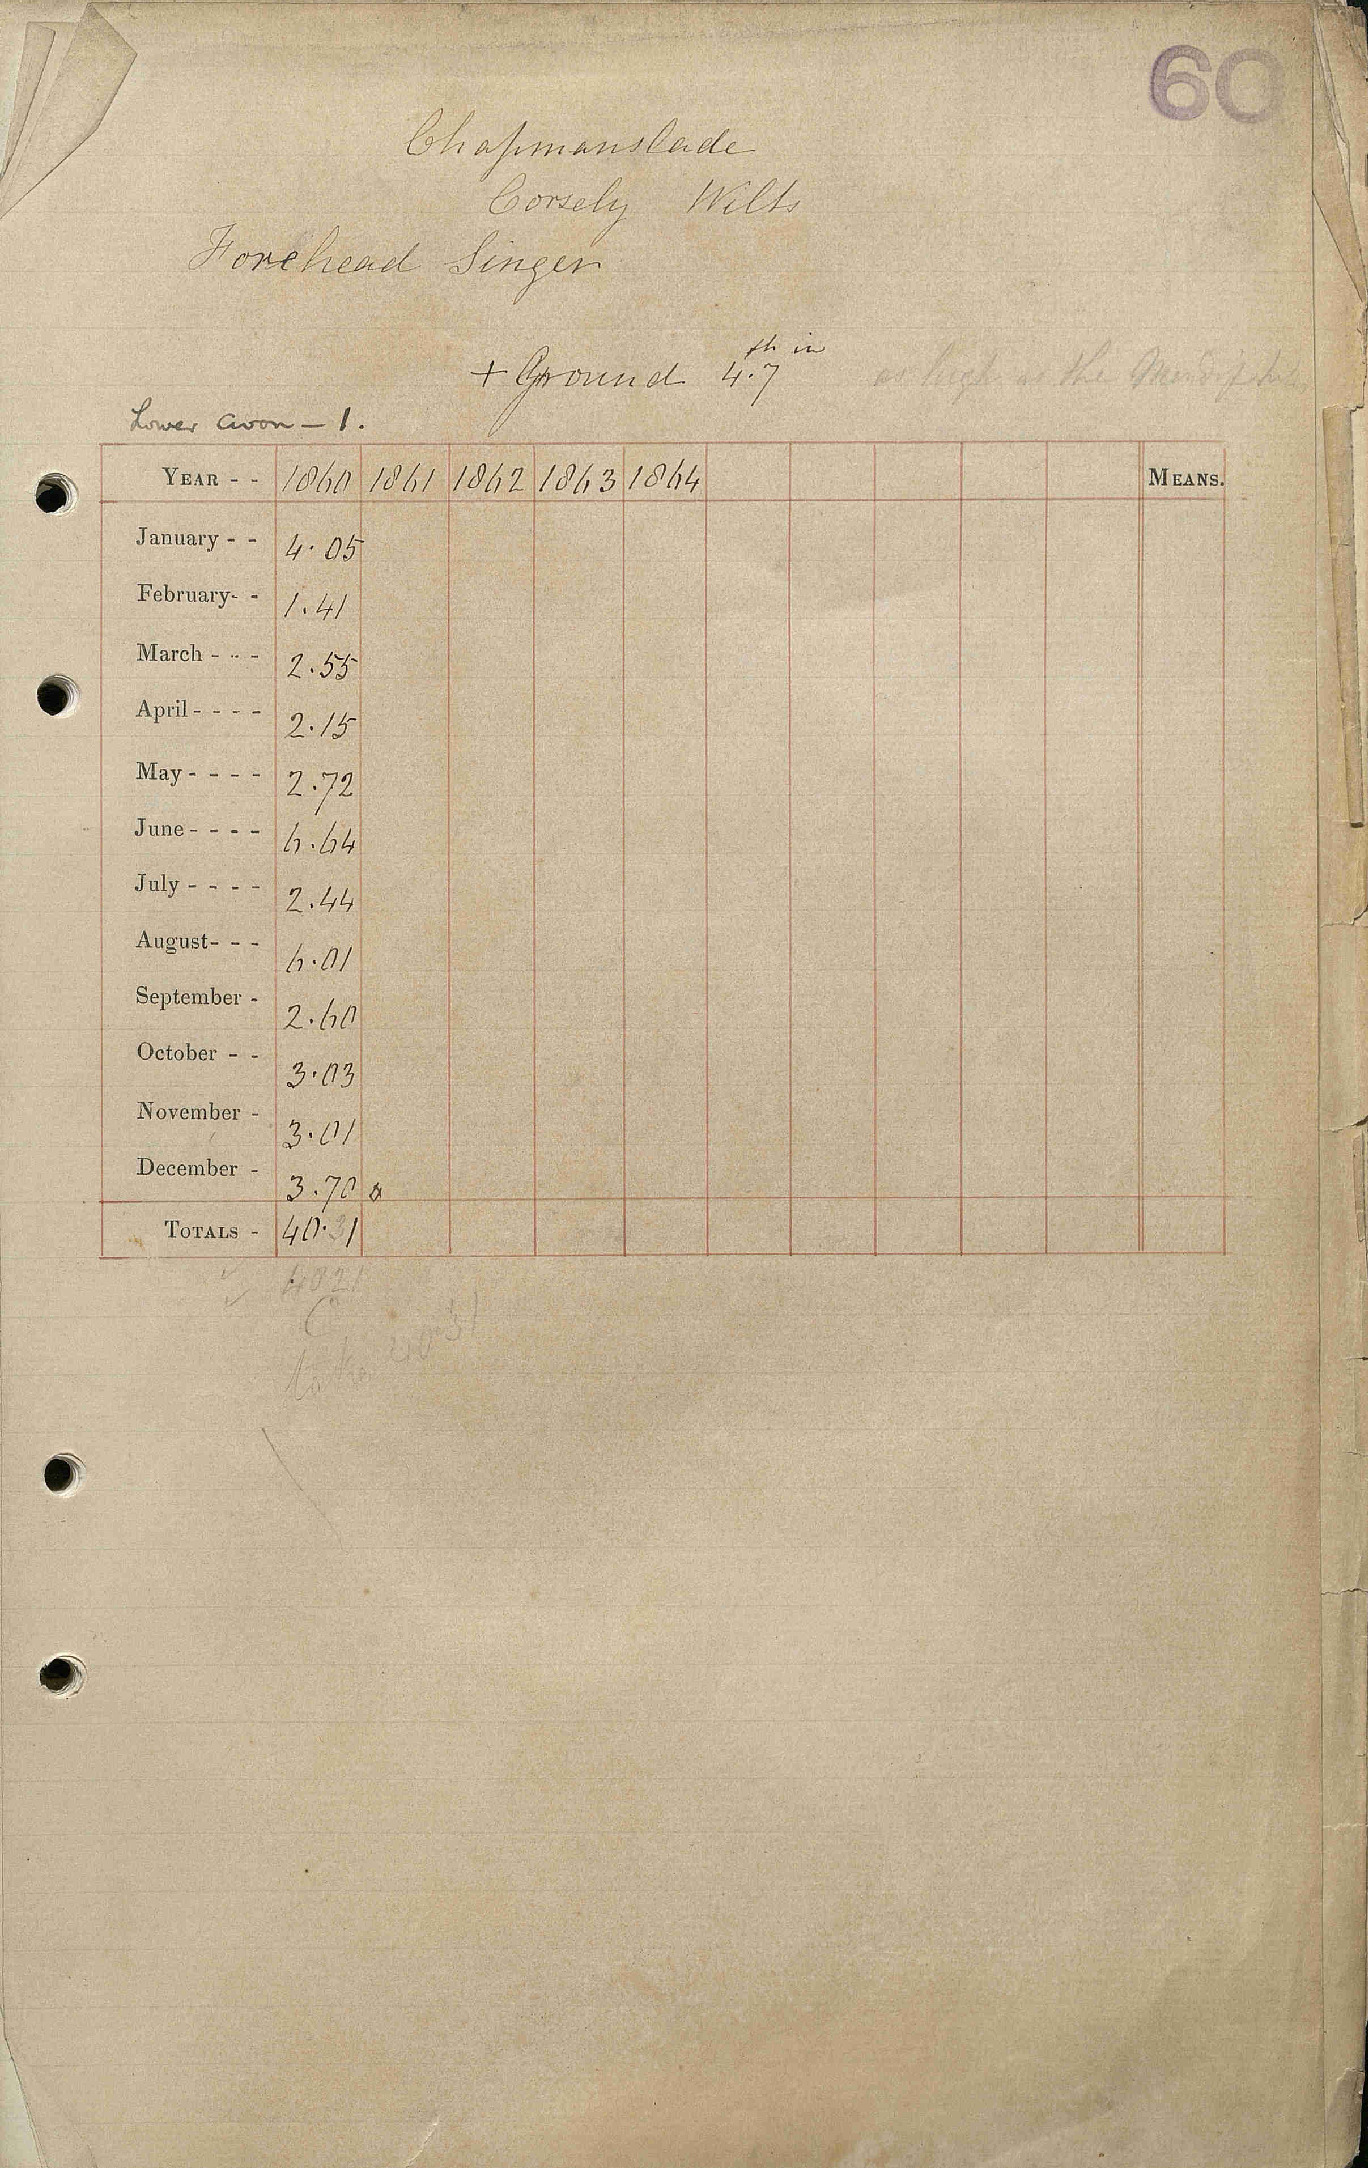 60
Chapmanslade
Corsely Wilts
Forehead Singer
ft in
+ Ground 4.7 as high as the Mendip
Lower Avon - 1.
YEAR - - 1860 1861 1862 1863 1864 MEANS.
January - - 4.05
February- - 1.41
March - - - 2.55
April - - - - 2.15
May - - - - 2.72
June - - - - 6.64
July - - - - 2.44
August- - - 6.01
September - 2.60
October - - 3.03
November - 3.01
December - 3.70
TOTALS - 40.31
4021
take 40.31